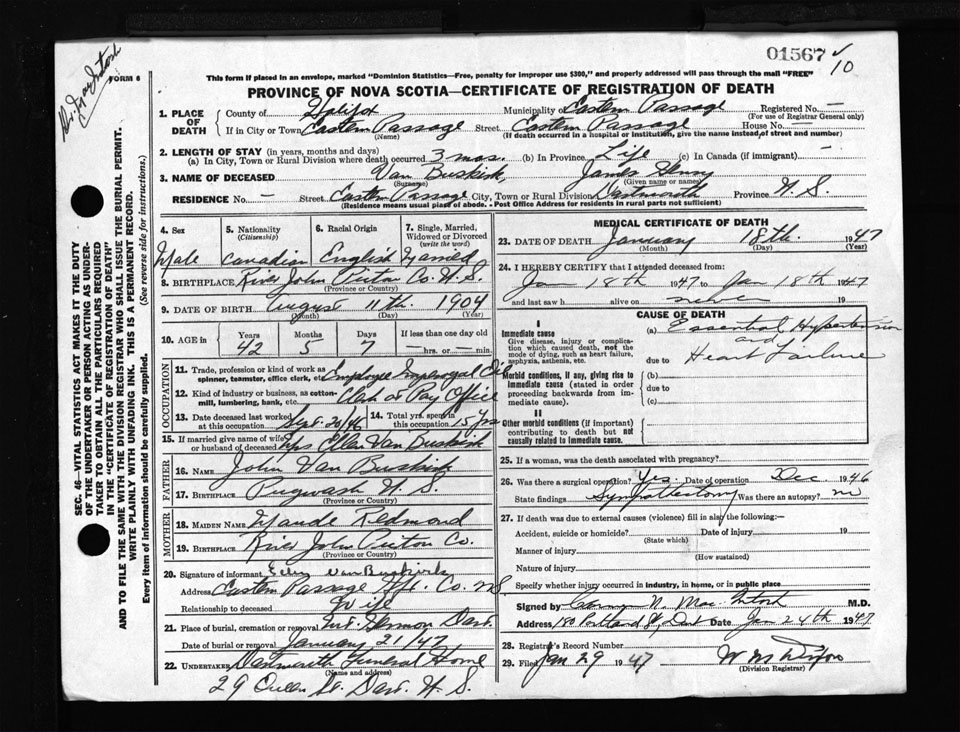 01567 ✓
10
Dr. MacIntosh
FORM 6
This form if placed in an envelope, marked "Dominion Statistics—Free, penalty for improper use $300," and properly addressed will pass through the mail "FREE"
PROVINCE OF NOVA SCOTIA—CERTIFICATE OF REGISTRATION OF DEATH
1. PLACE OF DEATH
County of Halifax Municipality of Eastern Passage Registered No. —
(For use of Registrar General only)
If in City or Town Eastern Passage Street Eastern Passage House No. —
(Name) (If death occurred in a hospital or institution, give the name instead of street and number)
2. LENGTH OF STAY (in years, months and days)
(a) In City, Town or Rural Division where death occurred 3 mos. (b) In Province Life (c) In Canada (if immigrant) —
3. NAME OF DECEASED Van Buskirk, James Henry
(Surname) (Given name or names)
RESIDENCE No. — Street Eastern Passage City, Town or Rural Division Dartmouth Province N. S.
(Residence means usual place of abode. Post Office Address for residents in rural parts not sufficient)
4. Sex 5. Nationality (Citizenship) 6. Racial Origin 7. Single, Married, Widowed or Divorced (write the word)
Male Canadian English Married
8. BIRTHPLACE River John Pictou Co. N. S.
(Province or Country)
9. DATE OF BIRTH August 11th. 1904
(Month) (Day) (Year)
10. AGE in Years Months Days If less than one day old
42 5 7 — hrs. or — min.
OCCUPATION
11. Trade, profession or kind of work as spinner, teamster, office clerk, etc. Employee Imperoyal Oil
12. Kind of industry or business, as cotton-mill, lumbering, bank, etc. Clerk at Pay Office
13. Date deceased last worked at this occupation Sept. 20/46 14. Total yrs. spent in this occupation 15 yrs
15. If married give name of wife or husband of deceased Mrs Ellen Van Buskirk
FATHER
16. NAME John Van Buskirk
17. BIRTHPLACE Pugwash N. S.
(Province or Country)
MOTHER
18. MAIDEN NAME Maude Redmond
19. BIRTHPLACE River John Pictou Co.
(Province or Country)
20. Signature of informant Ellen VanBuskirk
Address Eastern Passage Hfx. Co. NS
Relationship to deceased Wife
21. Place of burial, cremation or removal Mt. Hermon Dart.
Date of burial or removal January 21/47
22. UNDERTAKER Dartmouth Funeral Home
(Name and address)
29 Queen St. Dart. N. S.
MEDICAL CERTIFICATE OF DEATH
23. DATE OF DEATH January 18th. 1947
(Month) (Day) (Year)
24. I HEREBY CERTIFY that I attended deceased from:
Jan 18th 1947 to Jan 18th 1947
and last saw h alive on never 19
CAUSE OF DEATH
I
Immediate cause
Give disease, injury or complication which caused death, not the mode of dying, such as heart failure, asphyxia, asthenia, etc.
(a) Essential Hypertension and
due to Heart Failure
Morbid conditions, if any, giving rise to immediate cause (stated in order proceeding backwards from immediate cause).
(b)
due to
(c)
II
Other morbid conditions (if important) contributing to death but not causally related to immediate cause.
25. If a woman, was the death associated with pregnancy?
26. Was there a surgical operation? Yes. Date of operation Dec 1946
State findings Sympathectomy Was there an autopsy? no
27. If death was due to external causes (violence) fill in also the following:—
Accident, suicide or homicide? Date of injury 19
(State which)
Manner of injury
(How sustained)
Nature of injury
Specify whether injury occurred in industry, in home, or in public place
Signed by N. MacIntosh M.D.
Address 180 Portland St, Dart Date Jan 24th 1947
28. Registrar's Record Number
29. Filed Jan 29 1947
(Division Registrar)
SEC. 46—VITAL STATISTICS ACT MAKES IT THE DUTY
OF THE UNDERTAKER OR PERSON ACTING AS UNDER-
TAKER TO OBTAIN ALL THE PARTICULARS REQUIRED
IN THE "CERTIFICATE OF REGISTRATION OF DEATH"
AND TO FILE THE SAME WITH THE DIVISION REGISTRAR WHO SHALL ISSUE THE BURIAL PERMIT.
WRITE PLAINLY WITH UNFADING INK. THIS IS A PERMANENT RECORD.
Every item of information should be carefully supplied. (See reverse side for instructions.)